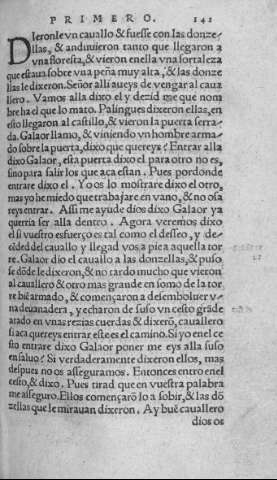 PRIMERO. 142
Dieronle vn cauallo & fuesse con las donze
llas, & anduuieron tanto que llegaron a
vna floresta, & vieron enella vna fortaleza
que estaua sobre vna peña muy alta, & las donze
llas le dixeron. Señor alli aueys de vengar al caua
llero. Vamos alla dixo el y dezid me que nom
bre ha el que lo mato. Palingues dixeron ellas, en
esto llegaron al castillo, & vieron la puerta serra
da. Galaor llamo, & viniendo vn hombre arma
do sobre la puerta, dixo que quereys? Entrar alla
dixo Galaor, esta puerta dixo el para otro no es,
sino para salir los que aca estan. Pues por donde
entrare dixo el. Yo os lo mostrare dixo el otro,
mas yo he miedo que trabajare en vano, & no osa
reys entrar. Assi me ayude dios dixo Galaor ya
querria ser alla dentro. Agora veremos dixo
el si vuestro esfuerço es tal como el desseo, y de-
céded del cauallo y llegad vos a pie a aquella tor
re. Galaor dio el cauallo a las donzellas, & puso
se dóde le dixeron, & no tardo mucho que vieron
al cauallero & otro mas grande en somo de la tor
re bié armado, & començaron a desemboluer v-
na deuanadera, y echaron de suso vn cesto gráde
atado en vnas rezias cuerdas & dixeró, cauallero
si aca quereys entrar este es el camino. Si yo enel ce
sto entrare dixo Galaor poner me eys alla suso
en saluo? Si verdaderamente dixeron ellos, mas
despues no os asseguramos. Entonces entro enel
cesto, & dixo. Pues tirad que en vuestra palabra
me asseguro. Ellos començaró lo a sobir, & las dó
zellas que le mirauan dixeron. Ay bué cauallero
dios os